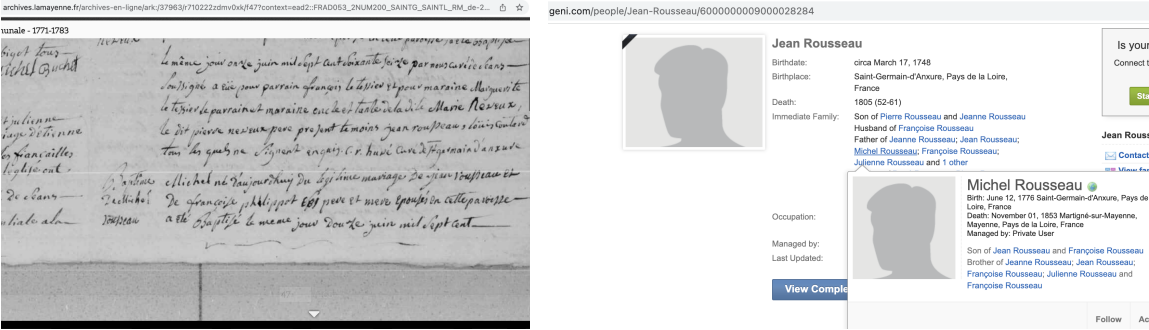 archives.lamayenne.fr/archives-en-ligne/ark:/37963/r710222zdmv0xk/f47?context=ead2::FRAD053_2NUM200_SAINTG_SAINTL_RM_de-2...
nunale - 1771-1783
le même jour onze juin mil sept cent soixante seize par nous curé de ceans
soussigné a eue pour parrain françois le tessier et pour maraine Marguerite
le tessier parrain et maraine oncle et tante de la dite Marie Nezeux
le dit pierre nezeux pere present temoins jean rousseau
tous les quels ne signent huré Curé de St germain d'anxure
Baptême
de Michel
rousseau
Michel né d'aujourdhuy du legitime mariage de jean rousseau et
de françoise philippot ses pere et mere epousés en cette paroisse
a été Baptisé le meme jour douze juin mil sept cent
julienne
d'etienne
fiançailles
l'église ont
de ceans
geni.com/people/Jean-Rousseau/6000000009000028284
Jean Rousseau
Birthdate: circa March 17, 1748
Birthplace: Saint-Germain-d'Anxure, Pays de la Loire,
France
Death: 1805 (52-61)
Immediate Family: Son of Pierre Rousseau and Jeanne Rousseau
Husband of Françoise Rousseau
Father of Jeanne Rousseau; Jean Rousseau;
Michel Rousseau; Françoise Rousseau;
Julienne Rousseau and 1 other
Occupation:
Managed by:
Last Updated:
View Comple
Michel Rousseau
Birth: June 12, 1776 Saint-Germain-d'Anxure, Pays de
Loire, France
Death: November 01, 1853 Martigné-sur-Mayenne,
Mayenne, Pays de la Loire, France
Managed by: Private User
Son of Jean Rousseau and Françoise Rousseau
Brother of Jeanne Rousseau; Jean Rousseau;
Françoise Rousseau; Julienne Rousseau and
Françoise Rousseau
Follow
Ac
Is your
Connect t
Sta
Jean Rouss
Contact
View fa